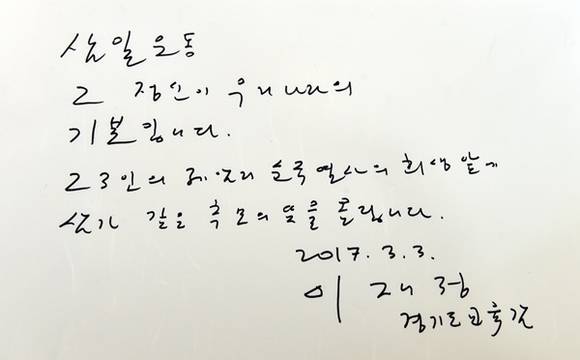 삼일운동
그 정신이 우리나라의
기본입니다.
23인의 제암리 순국열사의 희생 앞에
삼가 깊은 추모의 뜻을 올립니다.
2017. 3. 3.
이재정
경기도교육감